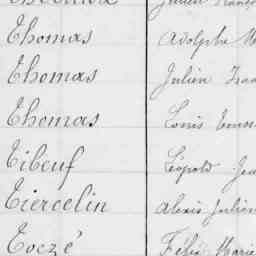 Thomas Adolphe
Thomas Julien
Thomas Louis
Tibeuf Léopold
Tiercelin Alexis Julien
Toczé Félix Marie